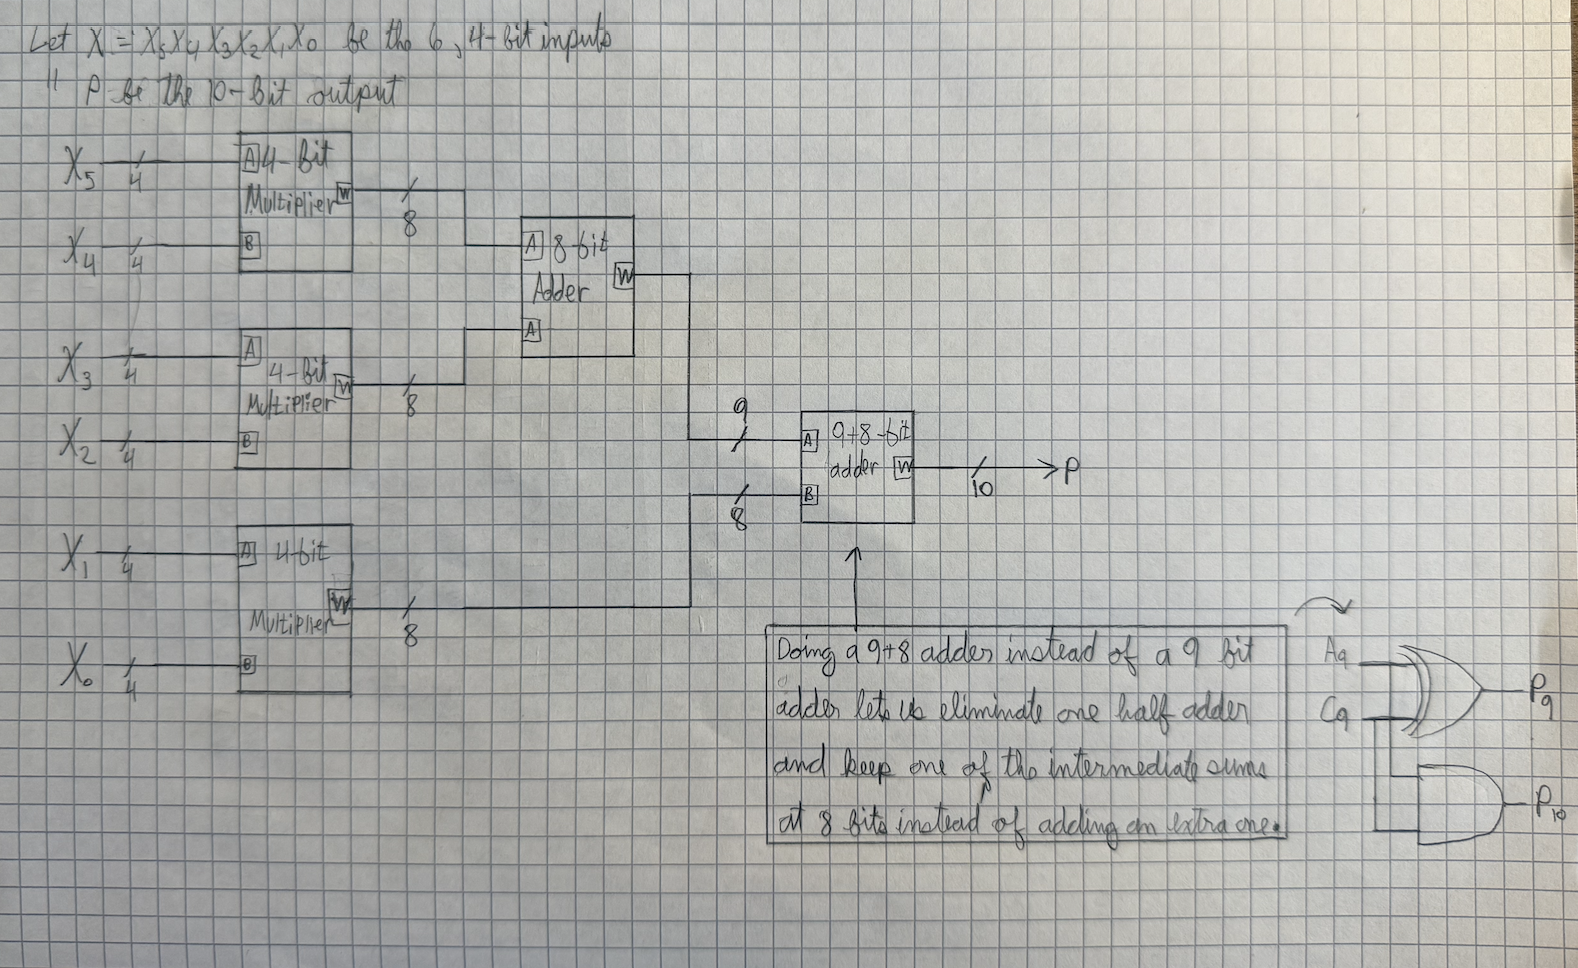 Let X = X5X4X3X2X1X0 be the 6, 4-bit inputs
" P be the 10-bit output
X5 4 A 4-Bit
Multiplier W 8
X4 4 B
A 8-bit
Adder W
A
X3 4 A
4-Bit
Multiplier W 8
X2 4 B
9 A 9+8-bit
adder W 10 P
8 B
X1 4 A 4-bit
Multiplier W 8
X0 4 B
Doing a 9+8 adder instead of a 9 bit
adder lets us eliminate one half adder
and keep one of the intermediate sums
at 8 bits instead of adding an extra one.
A9
C9
P9
P10